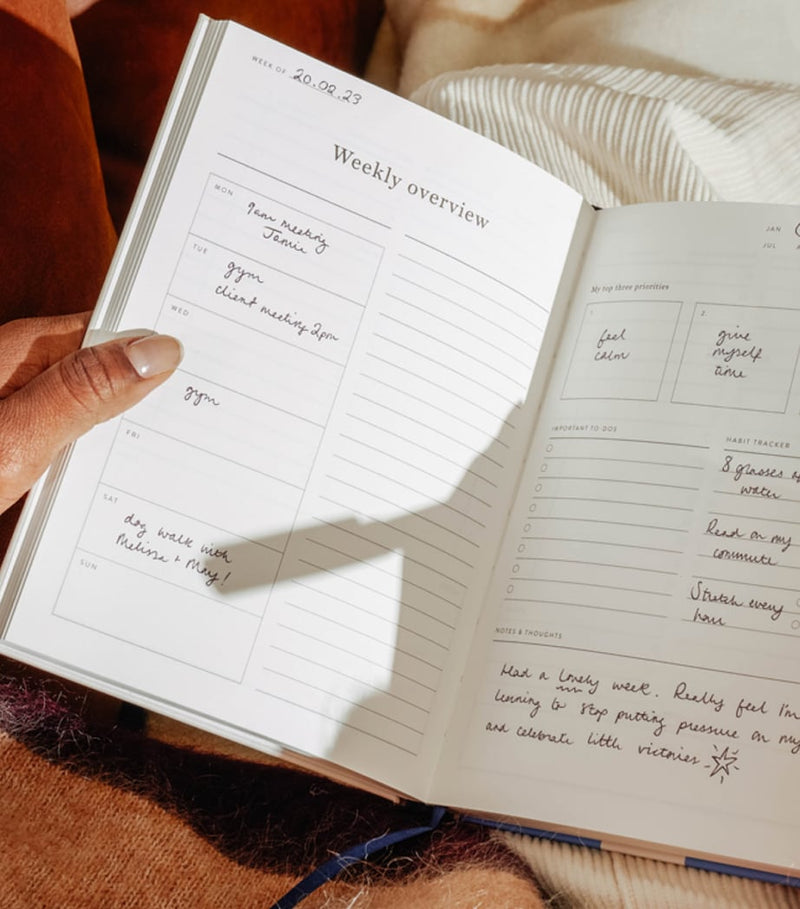 WEEK OF 20.02.23
Weekly overview
MON
9am meeting
Jamie
TUE
gym
client meeting 2pm
WED
gym
FRI
SAT
dog walk with
Melissa + May!
SUN
JAN
JUL
My top three priorities
1.
feel
calm
2.
give
myself
time
IMPORTANT TO-DOS
HABIT TRACKER
8 glasses of
water
Read on my
commute
Stretch every
hour
NOTES & THOUGHTS
Had a lovely week. Really feel I'm
learning to stop putting pressure on my
and celebrate little victories